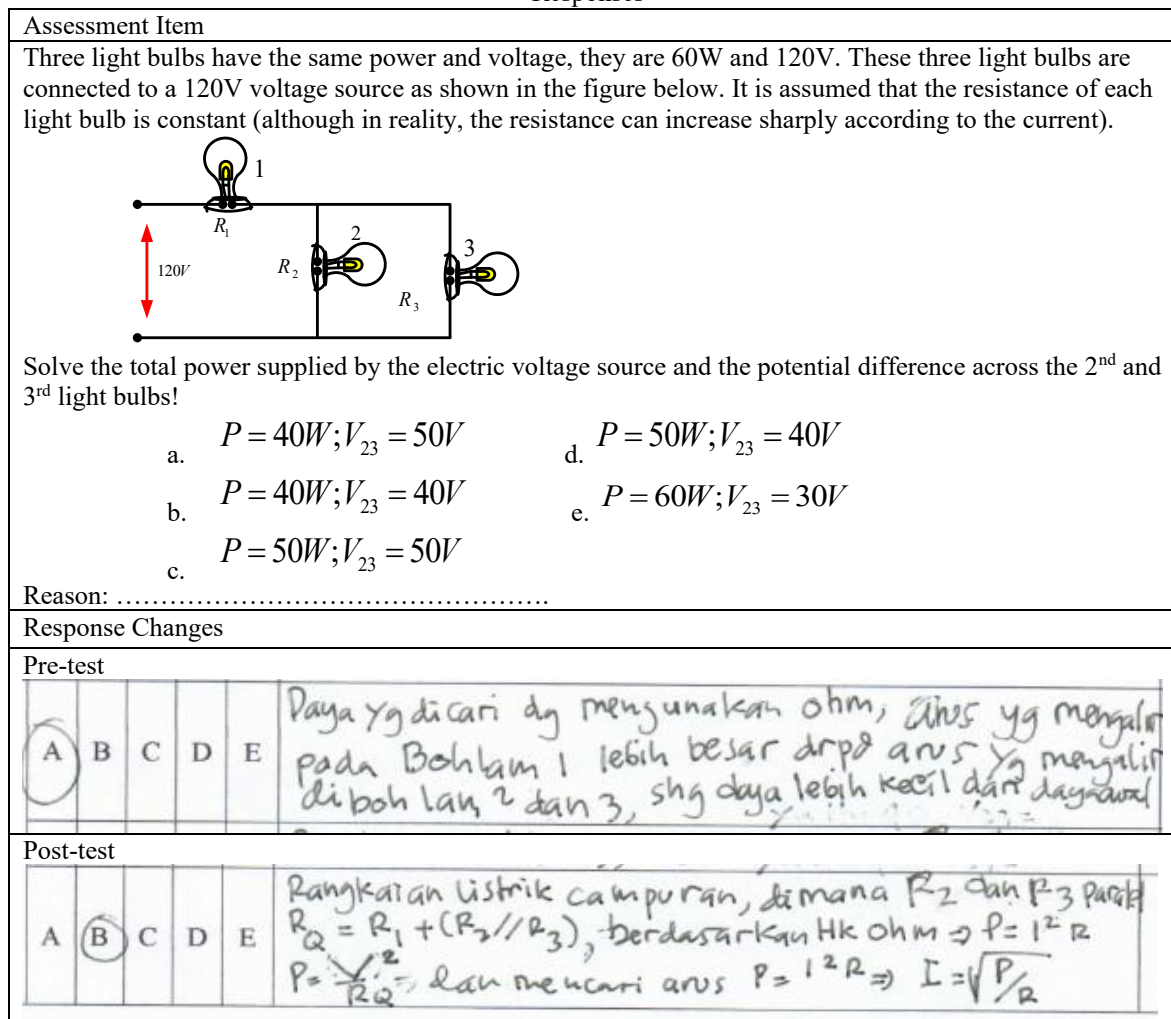 Assessment Item
Three light bulbs have the same power and voltage, they are 60W and 120V. These three light bulbs are
connected to a 120V voltage source as shown in the figure below. It is assumed that the resistance of each
light bulb is constant (although in reality, the resistance can increase sharply according to the current).
1
R₁
2
3
120V
R₂
R₃
Solve the total power supplied by the electric voltage source and the potential difference across the 2ⁿᵈ and
3ʳᵈ light bulbs!
a. P = 40W; V₂₃ = 50V
d. P = 50W; V₂₃ = 40V
b. P = 40W; V₂₃ = 40V
e. P = 60W; V₂₃ = 30V
c. P = 50W; V₂₃ = 50V
Reason: ……………………………………………….
Response Changes
Pre-test
A B C D E
Daya yg dicari dg mengunakan ohm, arus yg mengalir
pada Bohlam 1 lebih besar drpd arus yg mengalir
di bohlam 2 dan 3, shg daya lebih kecil dari daya awal
Post-test
A B C D E
Rangkaian listrik campuran, dimana R₂ dan R₃ Paralel
R_Q = R₁ + (R₂//R₃), berdasarkan Hk ohm ⇒ P = I² R
P = V²/RQ, dan mencari arus P = I² R ⇒ I = √P/R